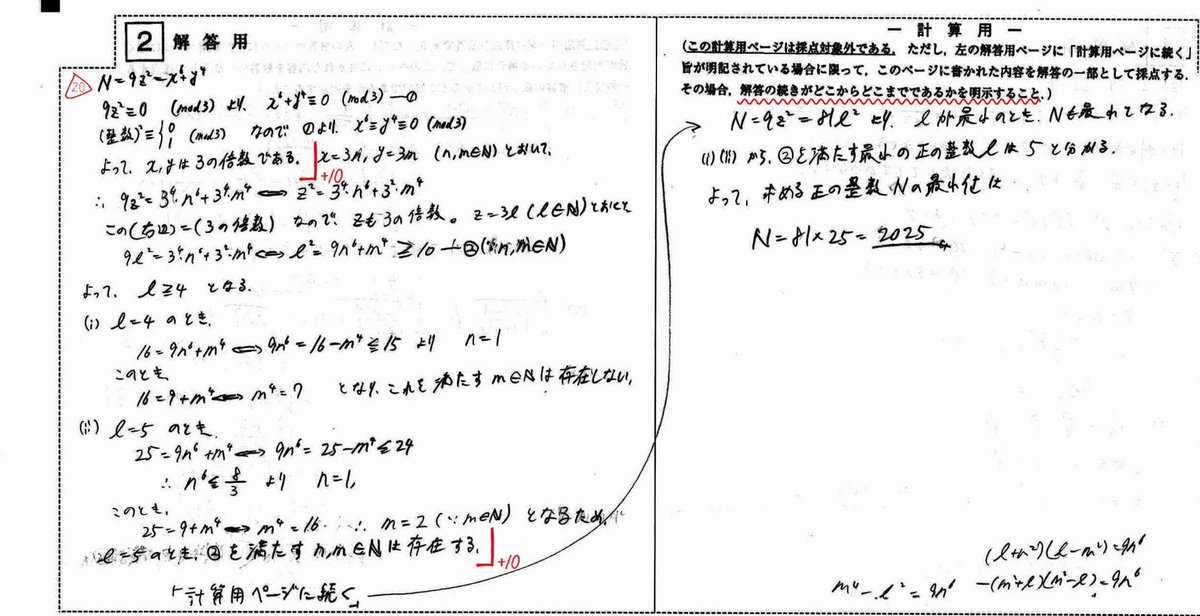 2 解答用
20
N=9z²=x⁶+y⁴
9z²≡0 (mod3) より、x⁶+y⁴≡0 (mod3) ―①
(整数)²≡{0, 1 (mod3) なので ①より、x⁶≡y⁴≡0 (mod3)
よって、x,yは3の倍数である。x=3n, y=3m (n,m∈N)とおいて、
+10
∴ 9z²=3⁶·n⁶+3⁴·m⁴ ⟺ z²=3⁴·n⁶+3²·m⁴
この(右辺)=(3の倍数) なので、zも3の倍数。z=3l (l∈N)とおくと
9l²=3⁴·n⁶+3²·m⁴ ⟺ l²=9n⁶+m⁴≧10 ―②(∵n,m∈N)
よって、l≧4 となる。
(i) l=4 のとき、
16=9n⁶+m⁴ ⟺ 9n⁶=16-m⁴≦15 より n=1
このとき
16=9+m⁴ ⟺ m⁴=7 となり、これを満たすm∈Nは存在しない。
(ii) l=5 のとき、
25=9n⁶+m⁴ ⟺ 9n⁶=25-m⁴≦24
∴ n⁶≦8/3 より n=1,
このとき、
25=9+m⁴ ⟺ m⁴=16 ∴ m=2 (∵m∈N) となるため、
l=5のとき、②を満たすn,m∈Nは存在する。
+10
「計算用ページに続く」
― 計算用 ―
(この計算用ページは採点対象外である。ただし、左の解答用ページに「計算用ページに続く」
旨が明記されている場合に限って、このページに書かれた内容を解答の一部として採点する.
その場合,解答の続きがどこからどこまでであるかを明示すること.)
N=9z²=81l² より、lが最小のとき、Nも最小となる.
(i)(ii)から、②を満たす最小の正の整数lは5と分かる.
よって、求める正の整数Nの最小値は
N=81×25=2025
(l+m²)(l-m²)=9n⁶
m⁴-l²=9n⁶ -(m²+l)(m²-l)=9n⁶